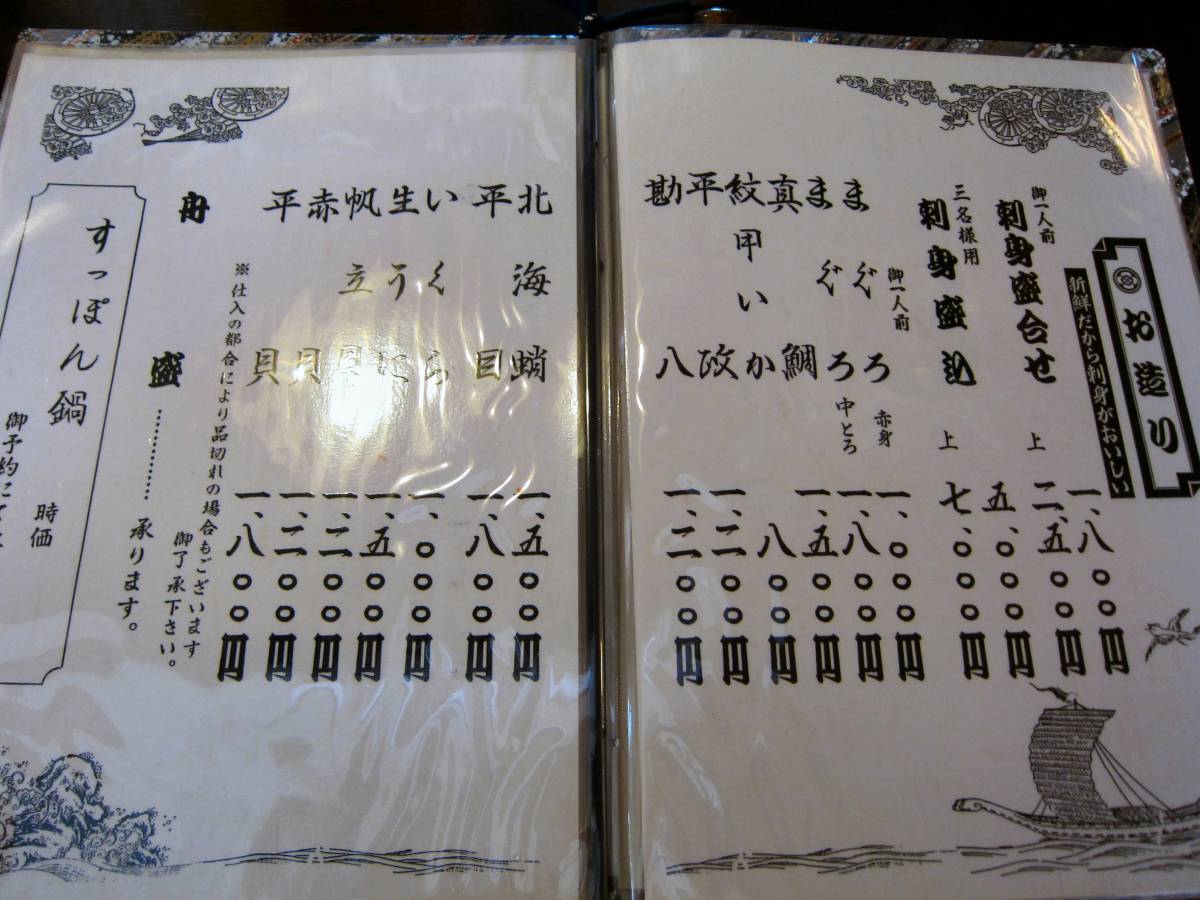 お造り
新鮮だから刺身がおいしい
御一人前
刺身盛合せ 一、八〇〇円
上 二、五〇〇円
三名様用
刺身盛込 五、〇〇〇円
上 七、〇〇〇円
御一人前
まぐろ 赤身 一、〇〇〇円
まぐろ 中とろ 一、八〇〇円
真鯛 一、五〇〇円
紋甲いか 八〇〇円
平政 一、二〇〇円
勘八 一、二〇〇円
北海蛸 一、五〇〇円
平目 一、八〇〇円
いくら 一、〇〇〇円
生うに 一、五〇〇円
帆立貝 一、二〇〇円
赤貝 一、二〇〇円
平貝 一、八〇〇円
※仕入の都合により品切れの場合もございます
御了承下さい。
舟盛…………承ります。
すっぽん鍋
時価
御予約にて